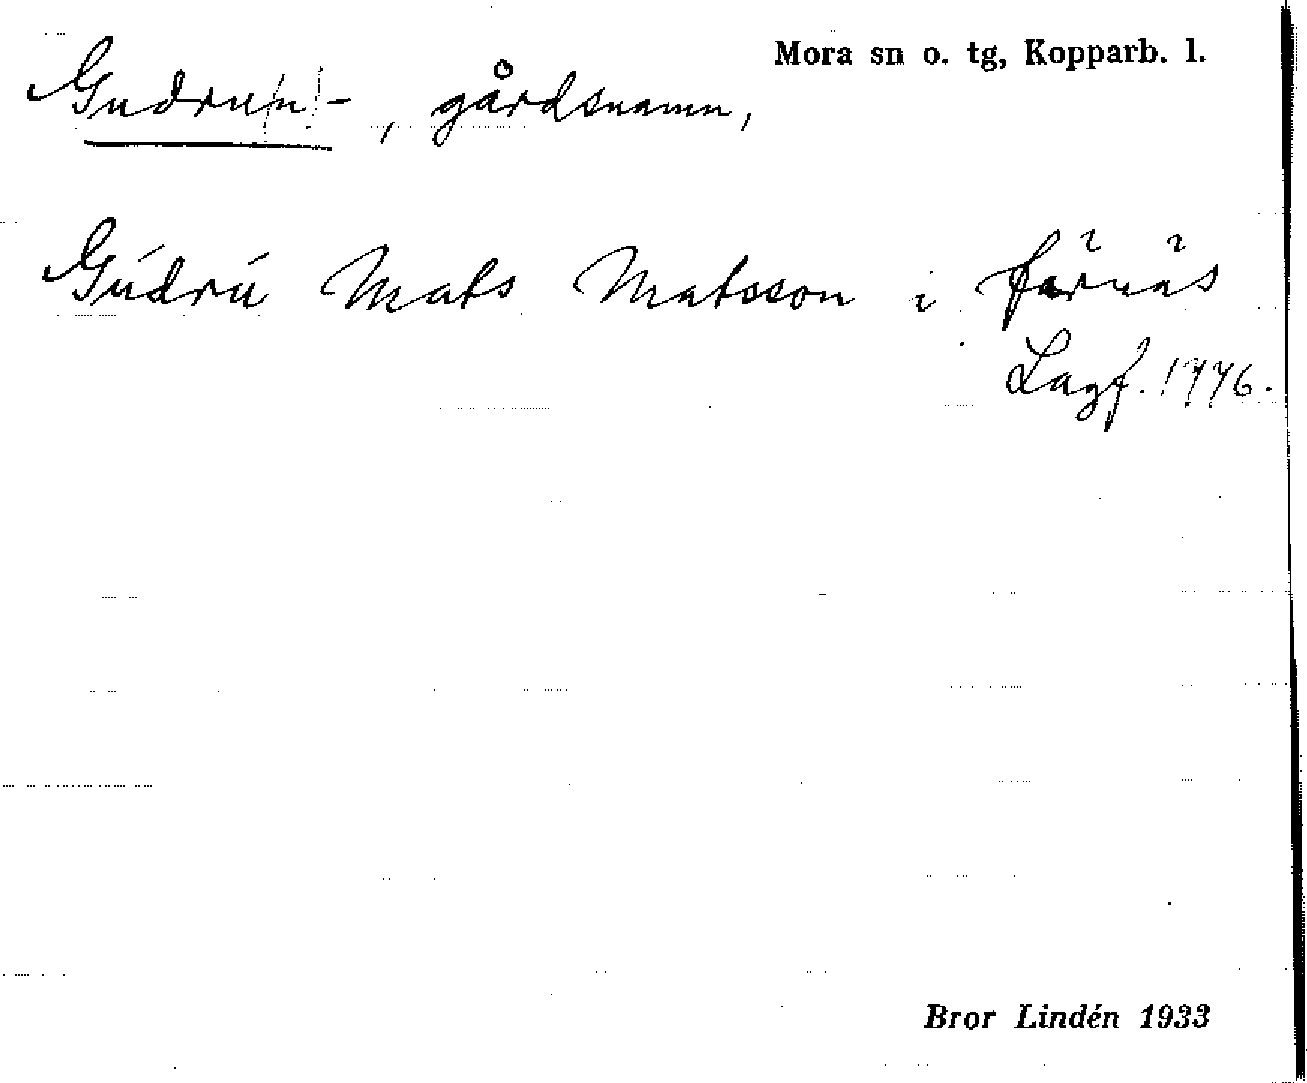 Mora sn o. tg, Kopparb. l.
Gudrun-, gårdsnamn,
Gúdrú Mats Matsson i färnäs
Lagf. 1776.
Bror Lindén 1933